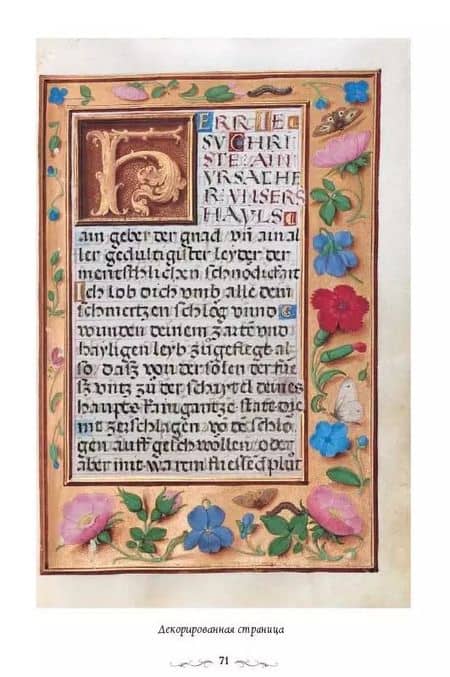 HERR IE
SV CHRI
STE AIN
VRSACHE
R VNSERS
HAYLS
ain geber der gnad / vn̄ ain al
ler gedultigister leyder der
menschlichen schnödickait
Ich lob dich vmb alle dein
schmertzen schlög vnnd
wunden deinem zarten vnd
hayligen leyb zůgefiegt al
so / das von der solen der fie
sz vntz zů der schaytel deines
hauptes kain gantze statt die
nit zerschlagen von schlo
gen auff geschwollen / oder
aber mit warem fliessēd plůt
Декорированная страница
71